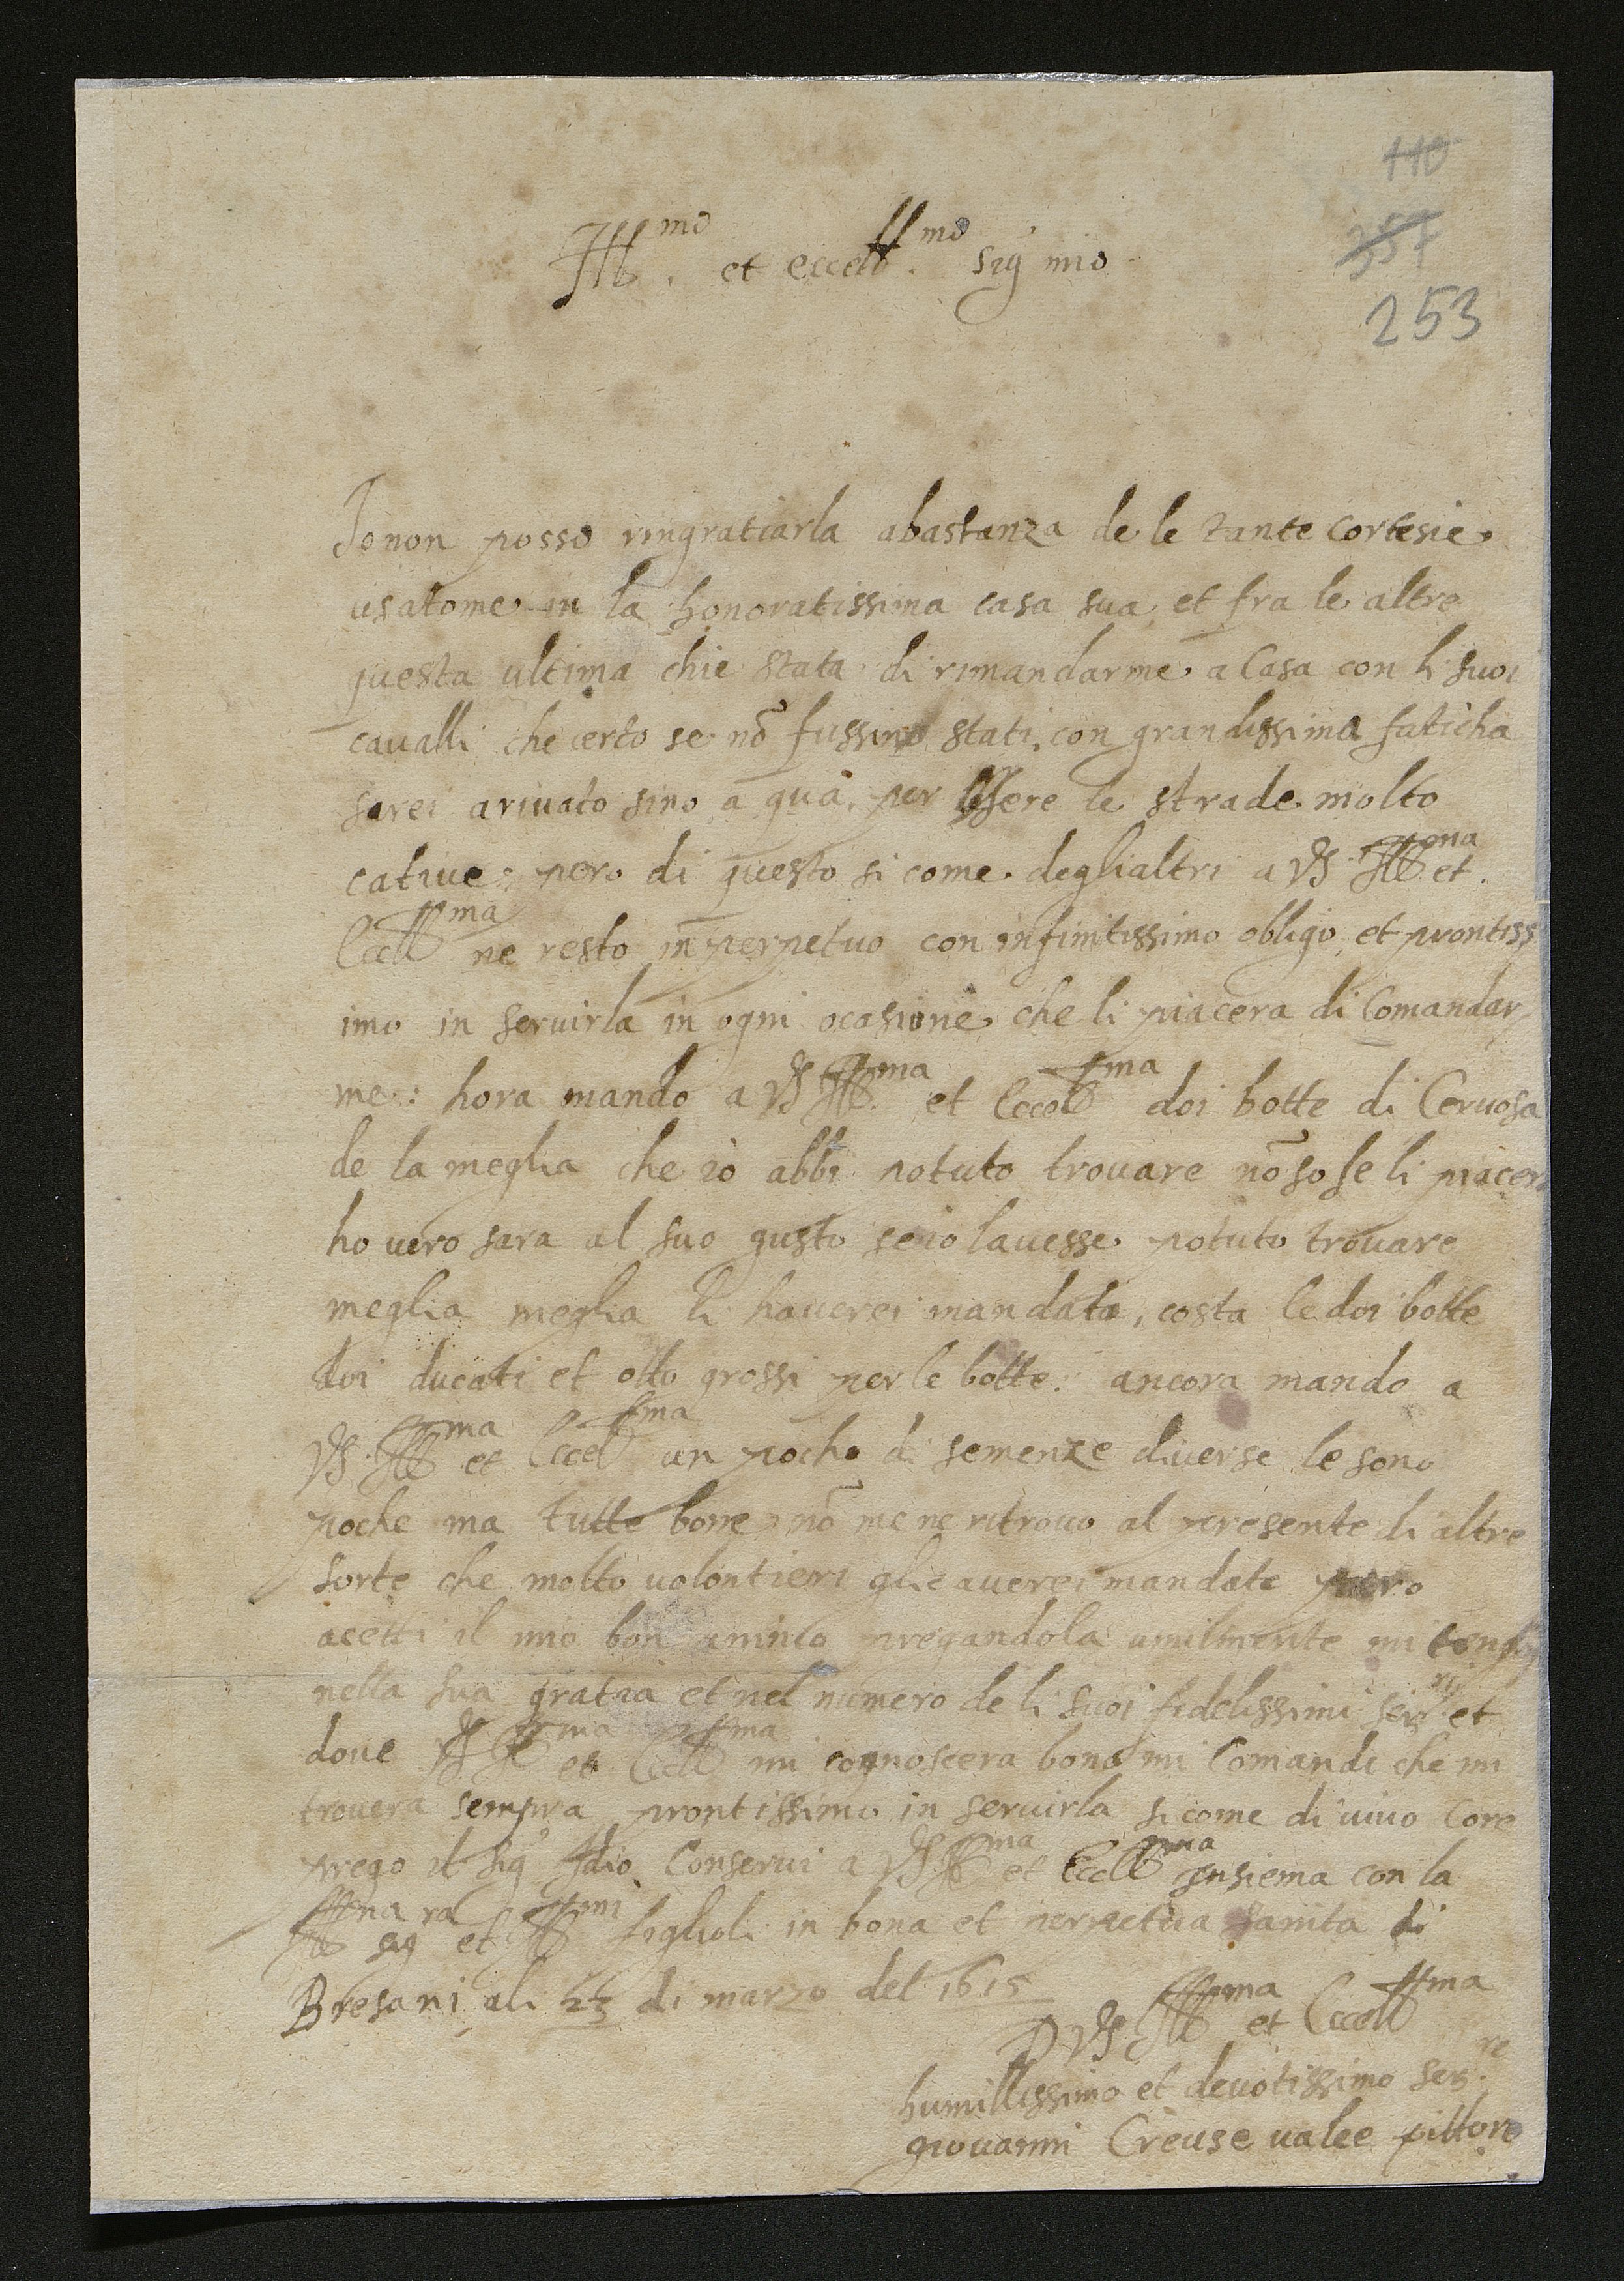 110
357
253
Ill.mo et eccell.mo sig mio
Io non posso ringratiarla abastanza de le tante cortesie
usatome in la honoratissima casa sua et fra le altre
questa ultima chie stata di rimandarme a Casa con li suoi
cavalli che certo se nō fussino stati, con grandissima faticha
sarei arivato sino a qua, per essere le strade molto
cative: pero di questo si come deglialtri a VS Ill.ma et
Eccell.ma ne resto in perpetuo con infinitissimo obligo et prontiss
imo in servirla in ogni ocasione che li piacera di Comandar
me: hora mando a VS Ill.ma et Eccell.ma doi botte di Cervosa
de la meglia che io abbi potuto trovare nō so se li piacer
ho vero sara al suo gusto seio lavesse potuto trovare
meglia meglia li haverei mandata, costa le doi botte
doi ducati et otto grossi per le botte: ancora mando a
VS Ill.ma et Eccell.ma un pocho di semenze diverse le sono
poche ma tutte bone, nō me ne ritrovo al presente di altre
sorte che molto volontieri glie averei mandate pero
acetti il mio bon animo pregandola umilmente mi tenghi
nella sua gratia et nel numero de li suoi fidelissimi ser.ri et
dove VS Ill.ma et Eccell.ma mi cognoscera bono mi Comandi che mi
trovera sempra prontissimo in servirla si come di vivo Core
prego il sig Idio Conservi a VS Ill.ma et Eccell.ma insiema con la
Ill.ma sig.ra et Ill.mi figlioli in bona et perpetua sanita di
Bresani ali 23 di marzo del 1615
D VS Ill.ma et Eccell.ma
humillissimo et devotissimo ser.re
giovanni Creuse valee pittore